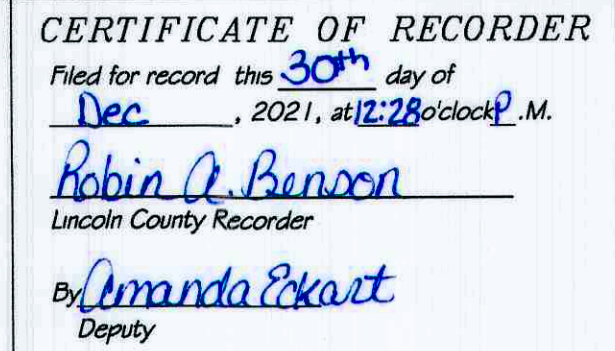 CERTIFICATE OF RECORDER
Filed for record this 30th day of
Dec, 2021, at 12:28 o'clock P.M.
Robin A. Benson
Lincoln County Recorder
By Amanda Eckart
Deputy